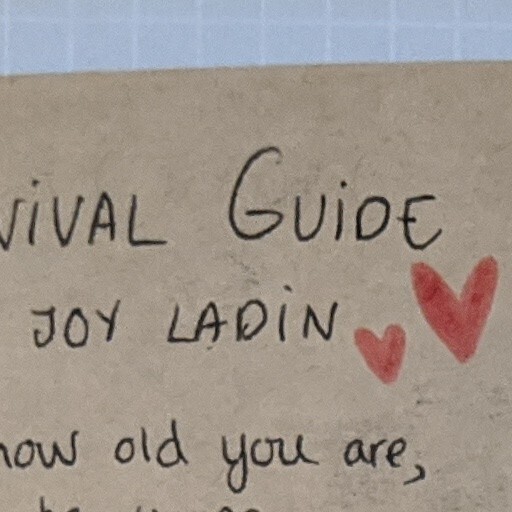 VIVAL GUIDE
JOY LADIN
how old you are,